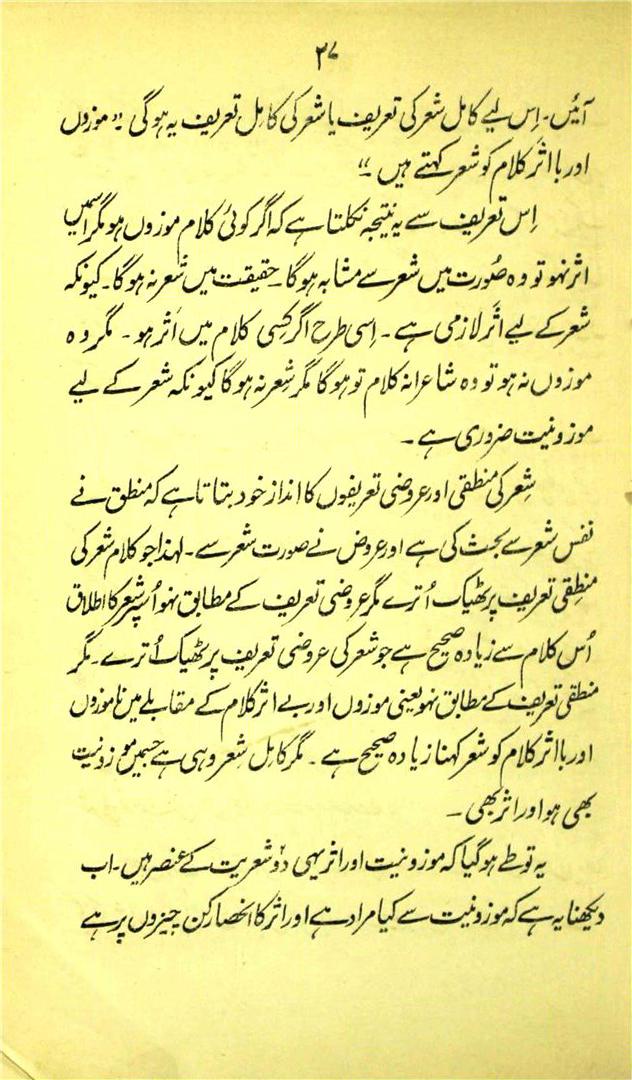 ۲۷
آئیں۔ اِس لیے کامل شعر کی تعریف یا شعر کی کامل تعریف یہ ہوگی " موزوں
اور بااثر کلام کو شعر کہتے ہیں "
اِس تعریف سے یہ نتیجہ نکلتا ہے کہ اگر کوئی کلام موزوں ہو مگر اِسمیں
اثر نہو تو وہ صُورت میں شعر سے مشابہ ہوگا۔ حقیقت میں شعر نہ ہوگا۔ کیونکہ
شعر کے لیے اثر لازمی ہے۔ اِسی طرح اگر کِسی کلام میں اَثر ہو۔ مگر وہ
موزوں نہ ہو تو وہ شاعرانہ کلام تو ہوگا مگر شِعر نہ ہوگا کیونکہ شعر کے لیے
موزونیت ضروری ہے۔
شِعر کی منطقی اور عروضی تعریفوں کا انداز خود بتاتا ہے کہ منطق نے
نفس شعر سے بحث کی ہے اور عروض نے صورت شعر سے۔ لہذا جو کلام شعر کی
منطِقی تعریف پر ٹھیک اُترے مگر عروضی تعریف کے مطابق نہو اُسپر شعر کا اطلاق
اُس کلام سے زیادہ صحیح ہے جو شعر کی عروضی تعریف پر ٹھیک اُترے۔ مگر
منطقی تعریف کے مطابق نہو یعنی موزوں اور بے اثر کلام کے مقابلے میں ناموزوں
اور بااثر کلام کو شعر کہنا زیادہ صحیح ہے۔ مگر کامِل شعر وہی ہے جسمیں موزونیت
بھی ہو اور اثر بھی۔
یہ تو طے ہوگیا کہ موزونیت اور اثر یہی دوٗ شعریت کے عنصر ہیں۔ اب
دیکھنا یہ ہے کہ موزونیت سے کیا مراد ہے اور اثر کا انحصار کن چیزوں پر ہے